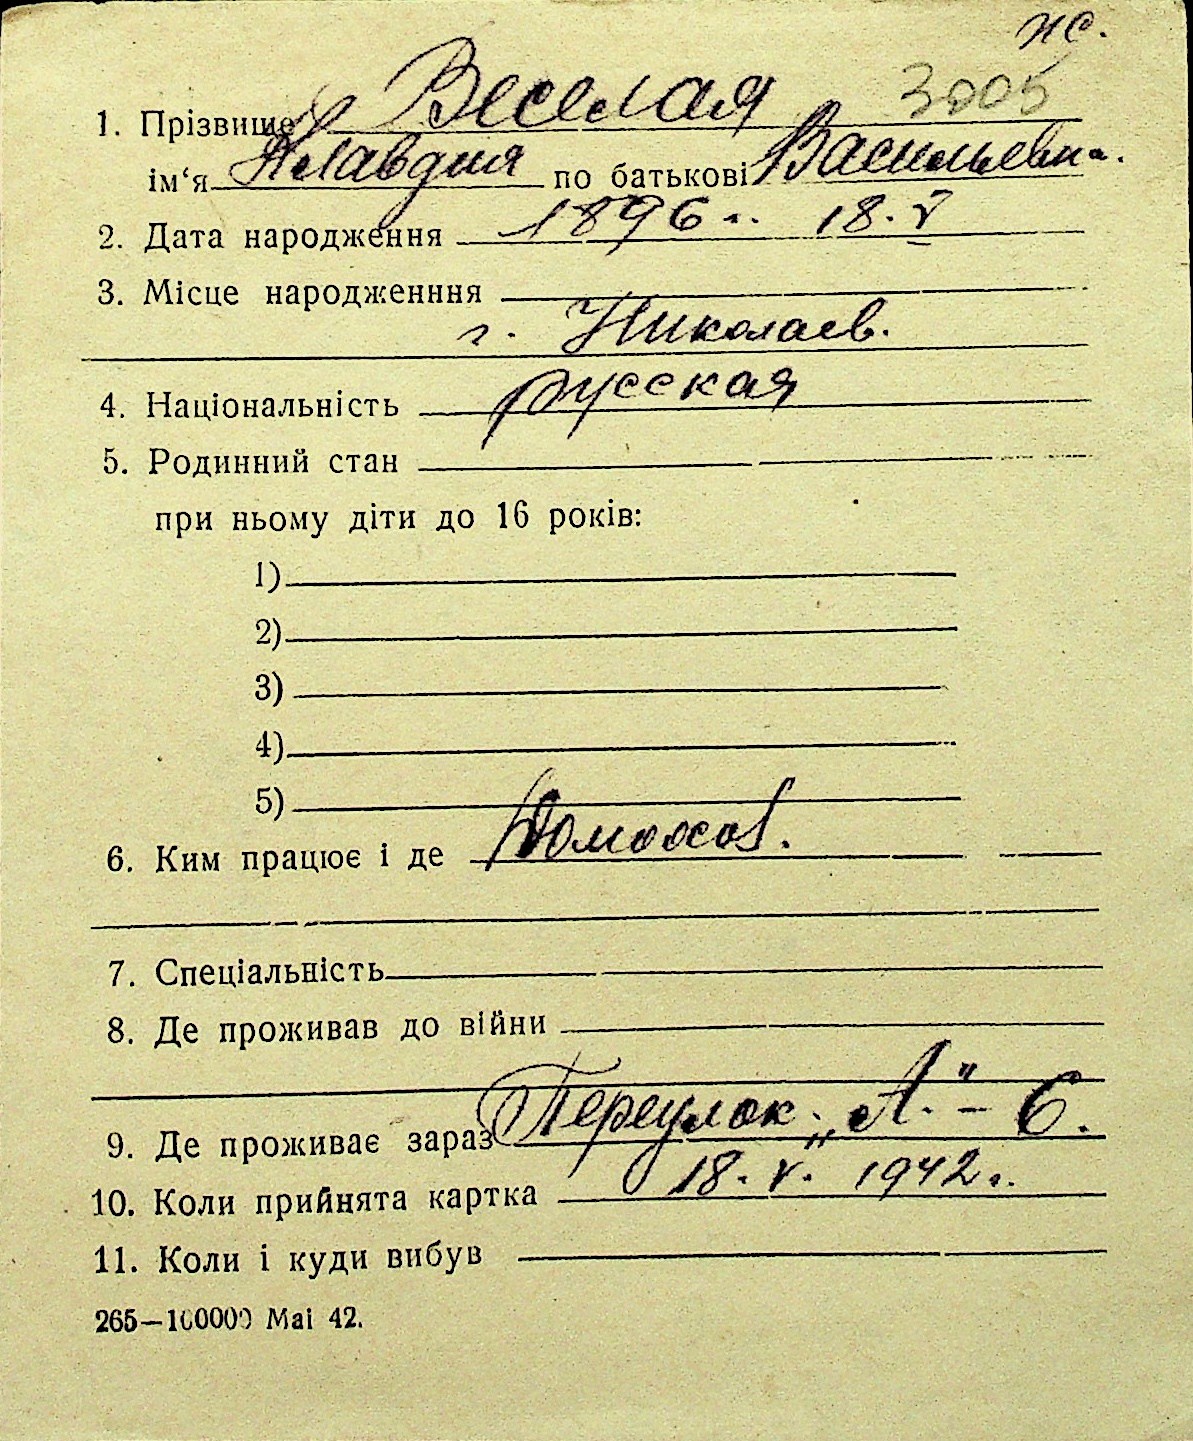 жс.
3005
1. Прізвище Веселая
ім‘я Клавдия по батькові Васильевн.
2. Дата народження 1896 г. 18. V
3. Місце народженння
г. Николаев.
4. Національність русская
5. Родинний стан
при ньому діти до 16 років:
1)
2)
3)
4)
5)
6. Ким працює і де Домохоз.
7. Спеціальність
8. Де проживав до війни
9. Де проживає зараз Переулок „А.“ – 6.
10. Коли прийнята картка 18. V. 1942 г.
11. Коли і куди вибув
265—100000 Маі 42.